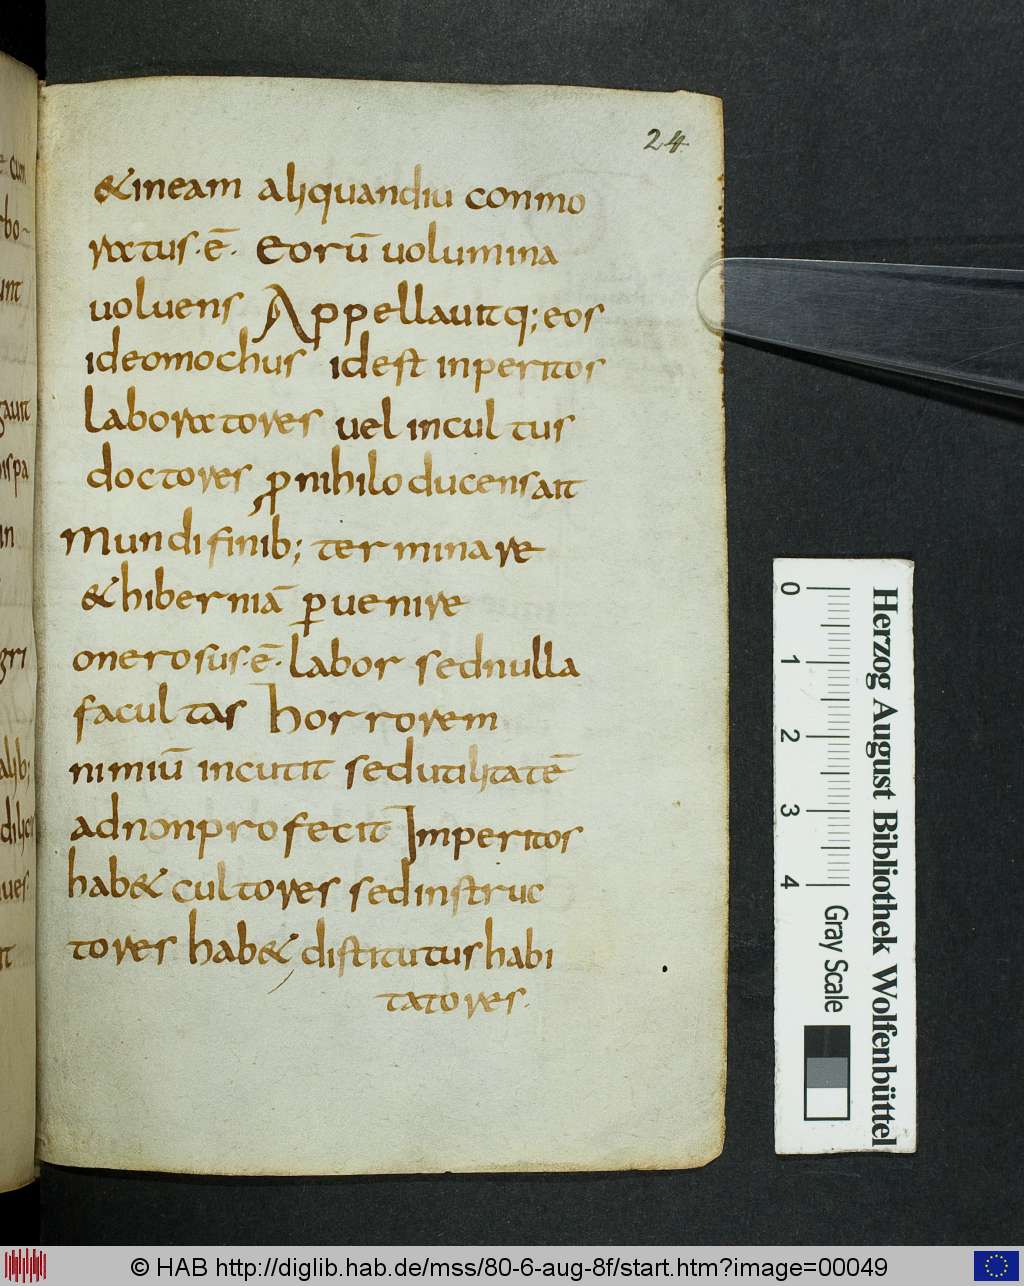 24
& ineam aliquandiu conmo
ratus·ē· Eorū uolumina
uoluens Appellauitq; eos
ideomochus idest inperitos
laboratores uel incultus
doctores ꝓnihilo ducens ait
Mundifinib; terminare
& hiberniā ꝑuenire
onerosus·ē· labor sednulla
facultas horrorem
nimiū incutit sedutilitatē
adnonprofecit Imperitos
hab& cultores sedinstruc
tores hab& distitutus habi
tatores·
e cum
rbo
unt
gauit
ispa
in
gri
alib;
dilic
ues·
it
0 1 2 3 4
Gray Scale
Herzog August Bibliothek Wolfenbüttel
© HAB http://diglib.hab.de/mss/80-6-aug-8f/start.htm?image=00049